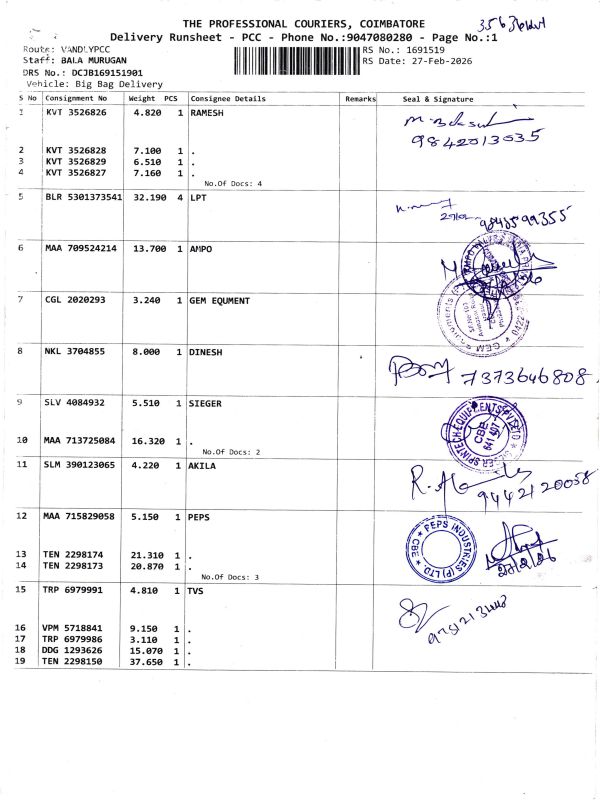 THE PROFESSIONAL COURIERS, COIMBATORE
Delivery Runsheet - PCC - Phone No.:9047080280 - Page No.:1
Route: VANDLYPCC
RS No.: 1691519
Staff: BALA MURUGAN
RS Date: 27-Feb-2026
DRS No.: DCJB169151901
Vehicle: Big Bag Delivery
S No Consignment No Weight PCS Consignee Details Remarks Seal & Signature
1 KVT 3526826 4.820 1 RAMESH
9842013035
2 KVT 3526828 7.100 1 .
3 KVT 3526829 6.510 1 .
4 KVT 3526827 7.160 1 .
No.Of Docs: 4
5 BLR 5301373541 32.190 4 LPT
9843599355
6 MAA 709524214 13.700 1 AMPO
7 CGL 2020293 3.240 1 GEM EQUMENT
8 NKL 3704855 8.000 1 DINESH
7373646808
9 SLV 4084932 5.510 1 SIEGER
CBE
641 407
10 MAA 713725084 16.320 1 .
No.Of Docs: 2
11 SLM 390123065 4.220 1 AKILA
9442120058
12 MAA 715829058 5.150 1 PEPS
PEPS INDUSTRIES (P) LTD. * CBE *
27/2/26
13 TEN 2298174 21.310 1 .
14 TEN 2298173 20.870 1 .
No.Of Docs: 3
15 TRP 6979991 4.810 1 TVS
16 VPM 5718841 9.150 1 .
17 TRP 6979986 3.110 1 .
18 DDG 1293626 15.070 1 .
19 TEN 2298150 37.650 1 .